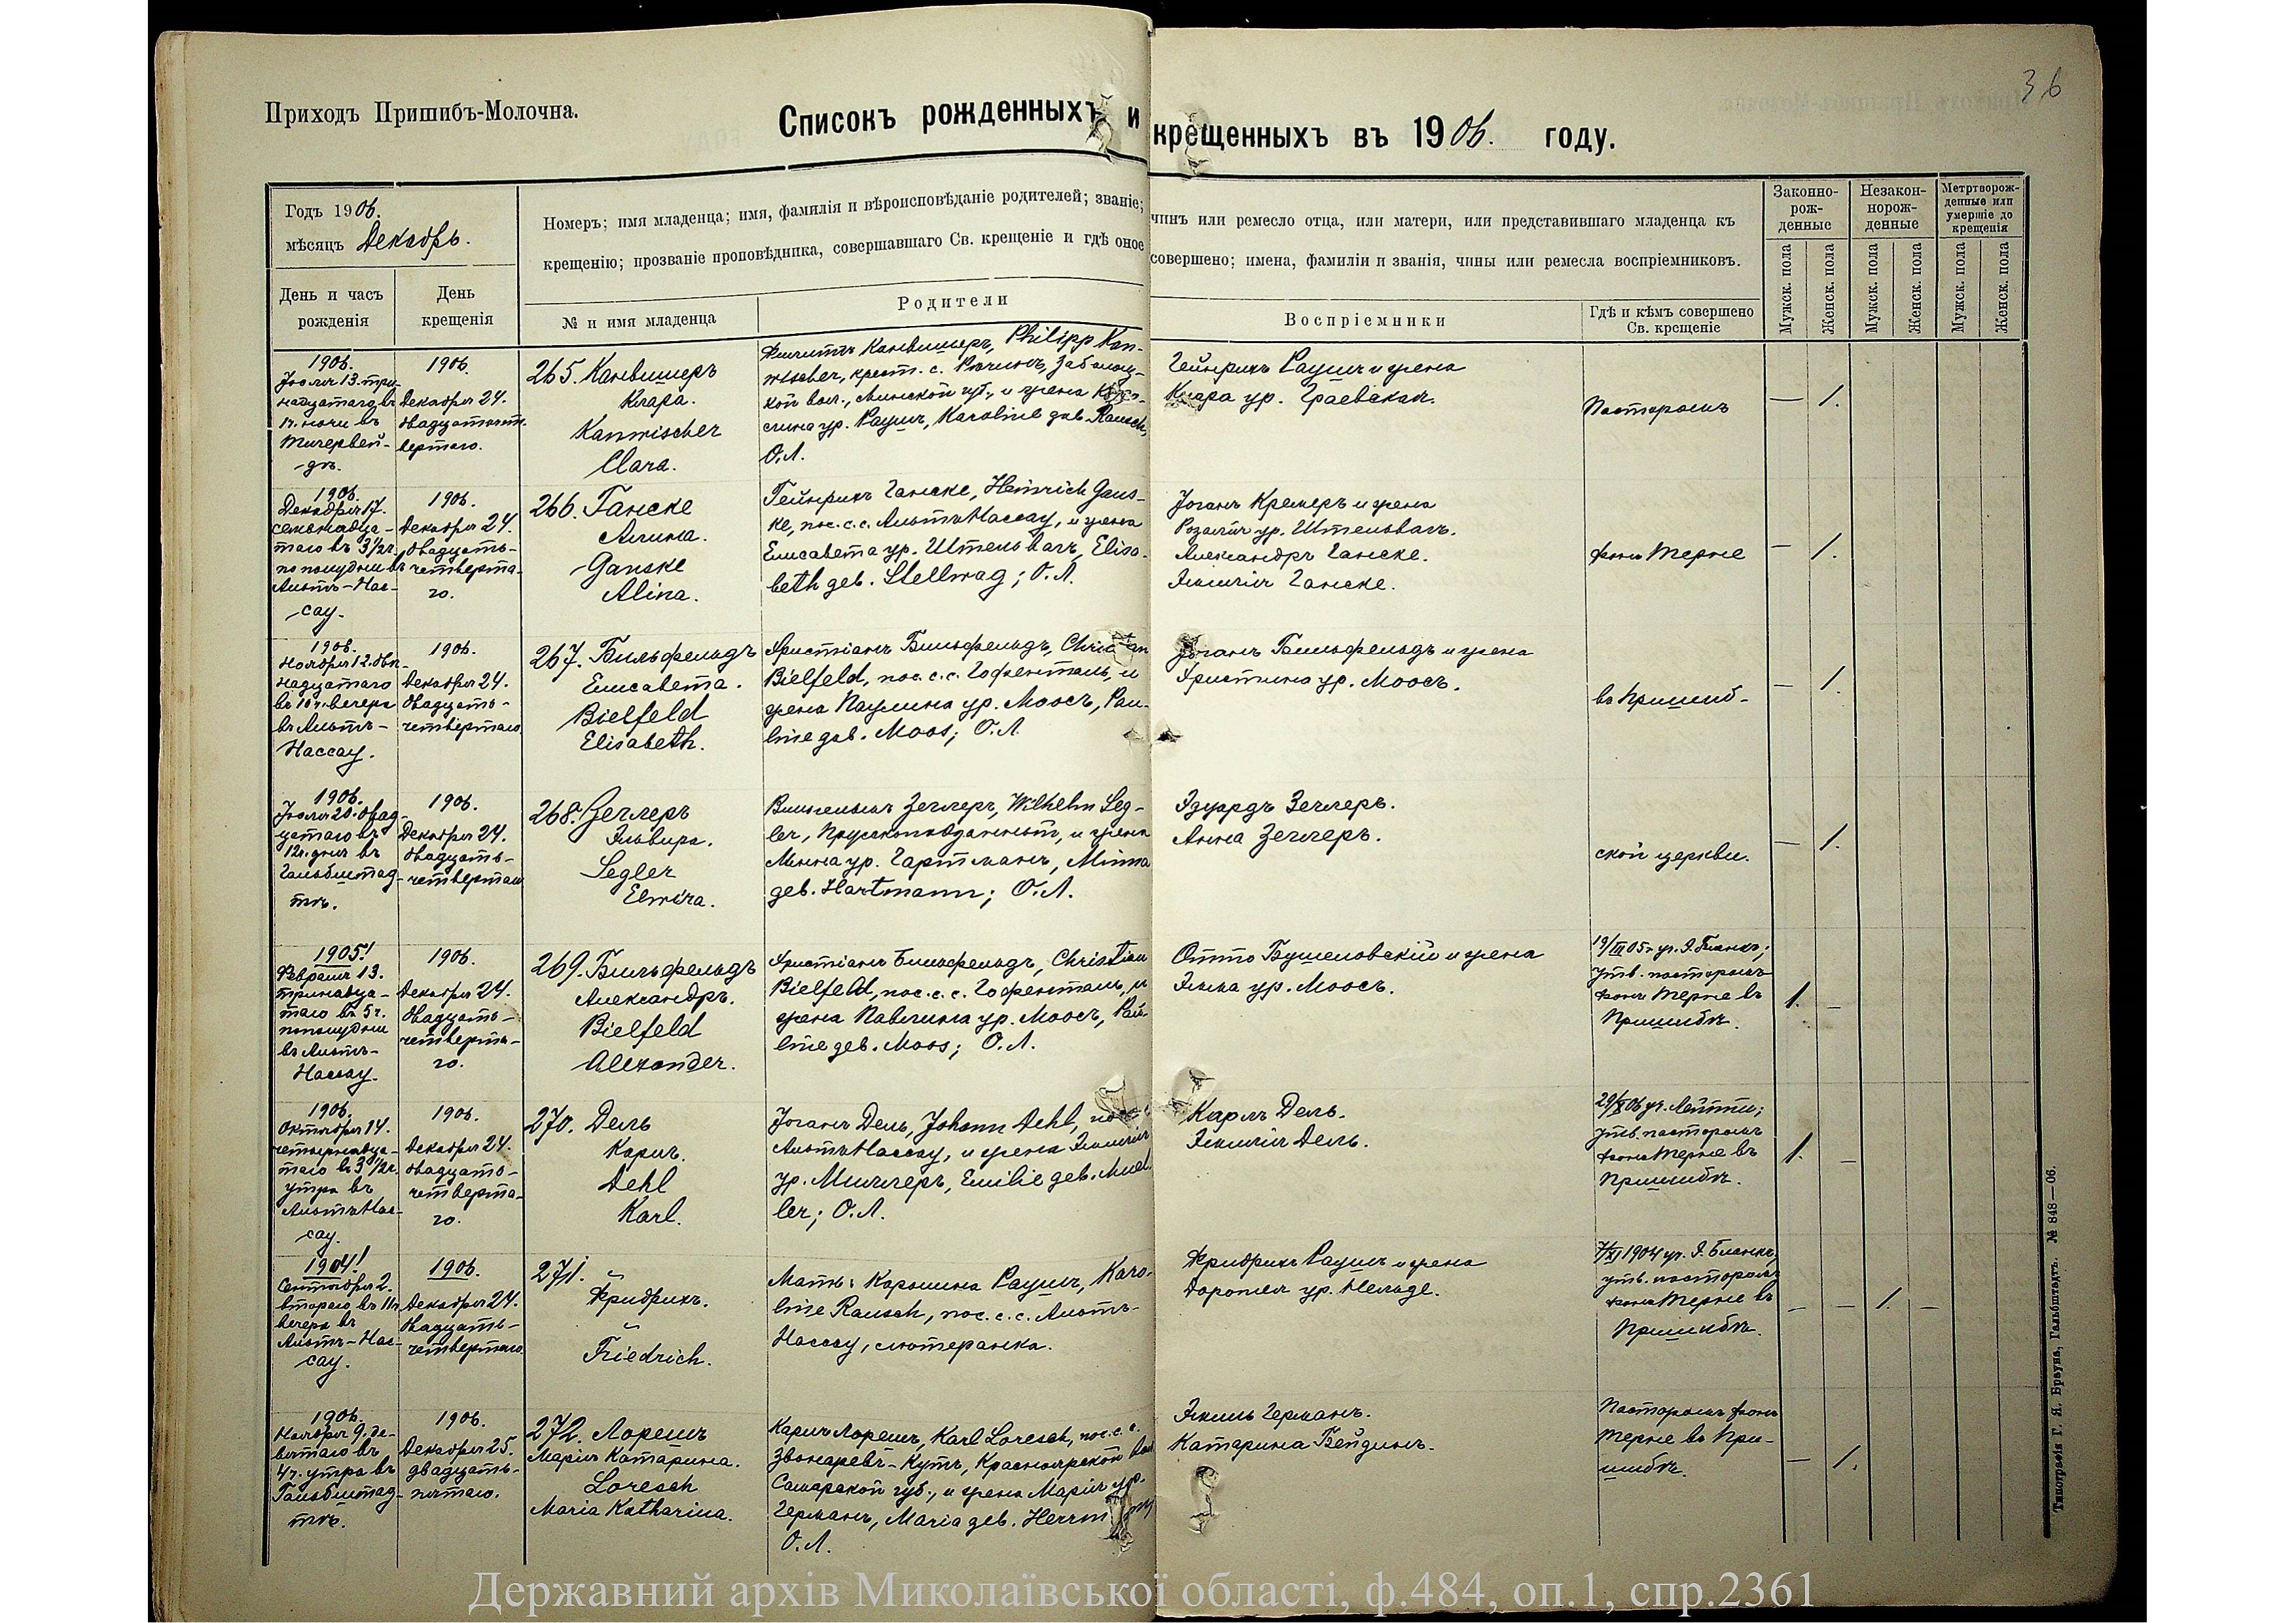 36
Приходъ Пришибъ-Молочна.
Списокъ рожденныхъ и крещенныхъ въ 1906. году.
Годъ 1906.
мѣсяцъ Декабрь.
Номеръ; имя младенца; имя, фамилія и вѣроисповѣданіе родителей; званіе; чинъ или ремесло отца, или матери, или представившаго младенца къ
крещенію; прозваніе проповѣдника, совершавшаго Св. крещеніе и гдѣ оное совершено; имена, фамиліи и званія, чины или ремесла воспріемниковъ.
Законно-
рож-
денные
Незакон-
норож-
денные
Метртворож-
денные или
умершіе до
крещенія
Мужск. пола
Женск. пола
Мужск. пола
Женск. пола
Мужск. пола
Женск. пола
День и часъ
рожденія
День
крещенія
№ и имя младенца
Родители
Воспріемники
Гдѣ и кѣмъ совершено
Св. крещеніе
1906.
Іюля 13. три-
надцатаго въ
ч. ночи въ
Тигервей-
дѣ.
1906.
Декабря 24.
двадцатьчет-
вертаго.
265. Канвишеръ
Клара.
Kanwischer
Clara.
Филиппъ Канвишеръ, Philipp Kan-
wischer, крест. с.
кой вол., Минской губ., и жена Каро-
лина ур.Раушъ, Karoline geb. Rausch,
О.Л.
Гейнрихъ Раушъ и жена
Клара ур. Граевская.
Пасторомъ
— 1.
1906.
Декабря 17.
семнадца-
таго въ 3½ч.
по полудни въ
Альтъ-Нас-
сау.
1906.
Декабря 24.
двадцать-
четверта-
го.
266. Ганске
Алина.
Ganske
Alina.
Гейнрихъ Ганске, Heinrich Gans-
ke, пос. с. с. Альтъ Нассау, и жена
Елисавета ур. Штельвагъ, Elisa-
beth geb. Stellwag; О.Л.
Іоганъ Кремеръ и жена
Розалія ур. Штельвагъ.
Александръ Ганске.
Эмилія Ганске.
фонъ Терне
— 1.
1906.
Ноября 12. две-
надцатаго
въ 10 ч. вечера
въ Альтъ-
Нассау.
1906.
Декабря 24.
двадцать-
четвертаго
267. Бильфельдъ
Елисавета.
Bielfeld
Elisabeth.
Христіанъ Бильфельдъ, Christian
Bielfeld, пос. с. с. Гофенталь, и
жена Паулина ур. Моосъ, Pau-
line geb. Moos; О.Л.
Іоганъ Бильфельдъ и жена
Христина ур. Моосъ.
въ Пришиб-
— 1.
1906.
Іюля 20. двад-
цатаго въ
12ч. дня въ
Гальбштад-
тѣ.
1906.
Декабря 24.
двадцать-
четвертаго
268. Зеглеръ
Эльвира.
Segler
Elwira.
Вильгельмъ Зеглеръ, Wilhelm Seg-
ler, Прусскоподданный, и жена
Минна ур. Гартманъ, Minna
geb. Hartmann; О.Л.
Эдуардъ Зеглеръ.
Анна Зеглеръ.
ской церкви.
— 1.
1905!
Февраля 13.
тринадца-
таго въ 5 ч.
пополудни
въ Альтъ-
Нассау.
1906.
Декабря 24.
двадцать-
четверта-
го.
269. Бильфельдъ
Александръ.
Bielfeld
Alexander.
Христіанъ Бильфельдъ, Christian
Bielfeld, пос. с. с. Гофенталь, и
жена Павлина ур. Моосъ, Pau-
line geb. Moos; О.Л.
Отто Бушеловскій и жена
Эмма ур. Моосъ.
19/III 05 г. уч. Я. Бланкъ;
утв. пасторомъ
фонъ Терне въ
Пришибѣ.
1. —
1906.
Октября 14.
четырнадца-
таго въ 3½ч.
утра въ
Альтъ Нас-
сау.
1906.
Декабря 24.
двадцать-
четверта-
го.
270. Дель
Карлъ.
Dehl
Karl.
Іоганъ Дель, Johann Dehl, пос.
Альтъ Нассау, и жена Эмилія
ур. Миллеръ, Emilie geb. Muel-
ler; О.Л.
Карлъ Дель.
Эмилія Дель.
29/X 06 уч. Лейтти;
утв. пасторомъ
фонъ Терне въ
Пришибѣ.
1. —
1904!
Сентября 2.
втораго въ 11ч
вечера въ
Альтъ-Нас-
сау.
1906.
Декабря 24.
двадцать-
четвертаго
271. –
Фридрихъ.
–
Friedrich.
Мать: Каролина Раушъ, Karo-
line Rausch, пос. с. с. Альтъ-
Нассау, лютеранка.
Фридрихъ Раушъ и жена
Доротея ур. Нельде.
7/XI 1904 уч. Я. Бланкъ;
утв. пасторомъ
фонъ Терне въ
Пришибѣ.
— — 1. —
1906.
Ноября 9. де-
вятаго въ
4 ч. утра въ
Гальбштад-
тѣ.
1906.
Декабря 25.
двадцать-
пятаго.
272. Лорешъ
Марія Катарина.
Loresch
Maria Katharina.
Карлъ Лорешъ, Karl Loresch, пос. с. с.
Звонаревъ-Кутъ, Красноярской вол.
Самарской губ., и жена Марія ур.
Германъ, Maria geb. Herrmann
О.Л.
Эмиль Германъ.
Катарина Вейдинъ.
Пасторомъ фонъ
Терне въ При-
шибѣ.
— 1.
Типографія Г. Я. Брауна, Гальбштадтъ. № 848—06.
Державний архів Миколаївської області, ф.484, оп.1, спр.2361